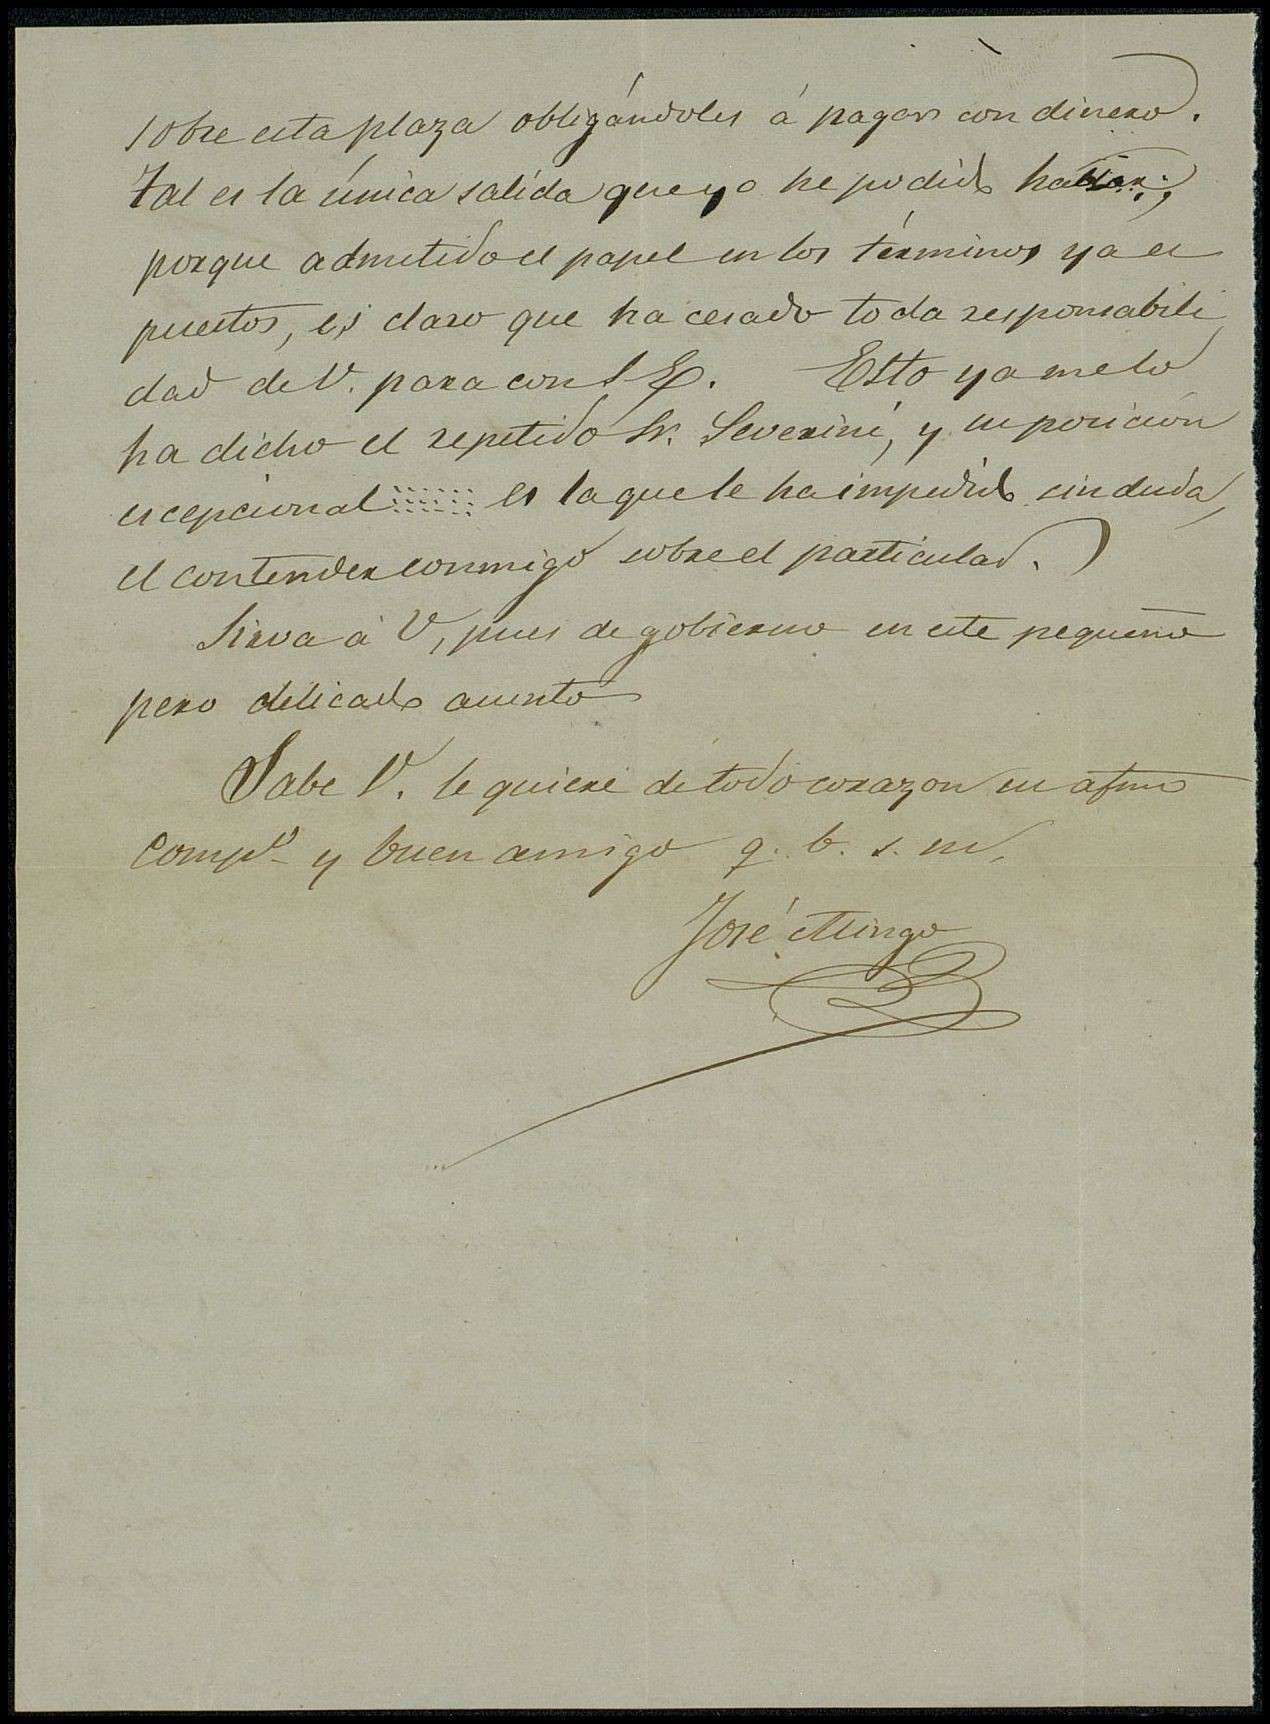 sobre esta plaza obligándoles á pagar con dinero.
Tal es la única salida que yo he podido hallar;
porque admitido el papel en los términos ya es
puestos, es claro que ha cesado toda responsabili
dad de V. para con S. E. Esto ya me lo
ha dicho el repetido Sr. Severini, y su posición
escepcional es la que le ha impedido sin duda,
el contender conmigo sobre el particular.
Sirva á V, pues de gobierno en este pequeño
pero delicado asunto
Sabe V. le quiere de todo corazon su afmo
Comp.º y buen amigo q. b. s. m.
José Mingo